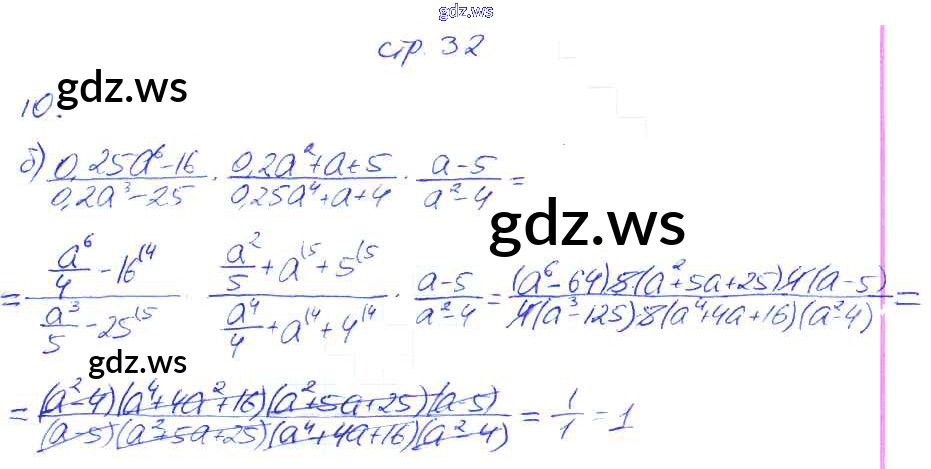 gdz.ws
стр. 32
gdz.ws
10.
б) (0,25a⁶-16)/(0,2a³-25) · (0,2a²+a+5)/(0,25a⁴+a+4) · (a-5)/(a²-4) =
gdz.ws
= (a⁶/4 - 16⁽⁴)/(a³/5 - 25⁽⁵) · (a²/5 + a⁽⁵ + 5⁽⁵)/(a⁴/4 + a⁽⁴ + 4⁽⁴) · (a-5)/(a²-4) = ((a⁶-64)·5(a²+5a+25)·4(a-5))/(4(a³-125)·5(a⁴+4a+16)(a²-4)) =
gdz.ws
= ((a²-4)(a⁴+4a²+16)(a²+5a+25)(a-5))/((a-5)(a²+5a+25)(a⁴+4a+16)(a²-4)) = 1/1 = 1